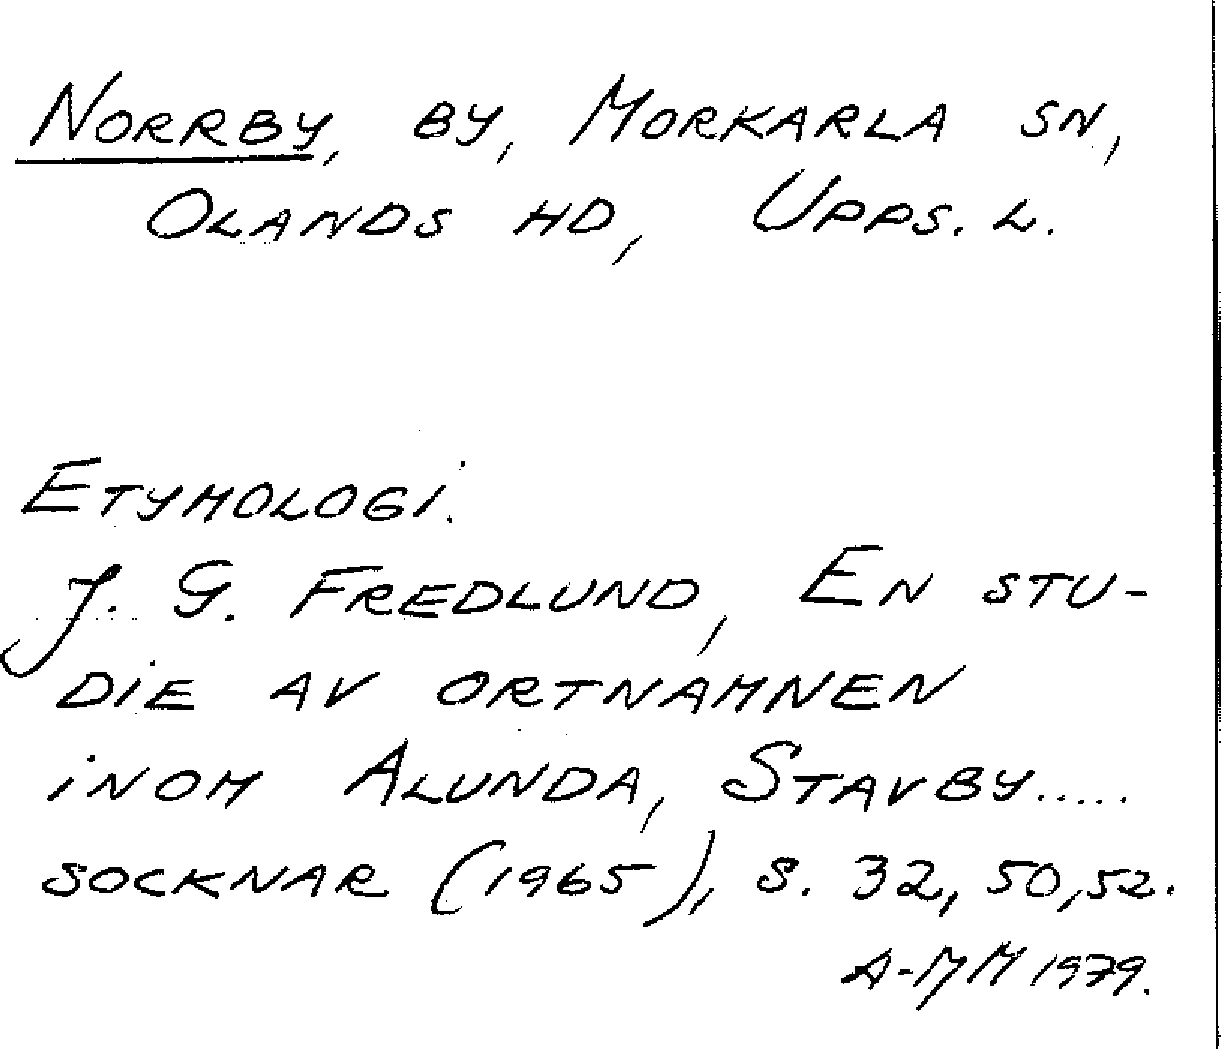 NORRBY, BY, MORKARLA SN,
OLANDS HD, UPPS. L.
ETYMOLOGI.
J. G. FREDLUND, EN STU-
DIE AV ORTNAMNEN
INOM ALUNDA, STAVBY.....
SOCKNAR (1965), S. 32, 50, 52.
A-MM 1979.